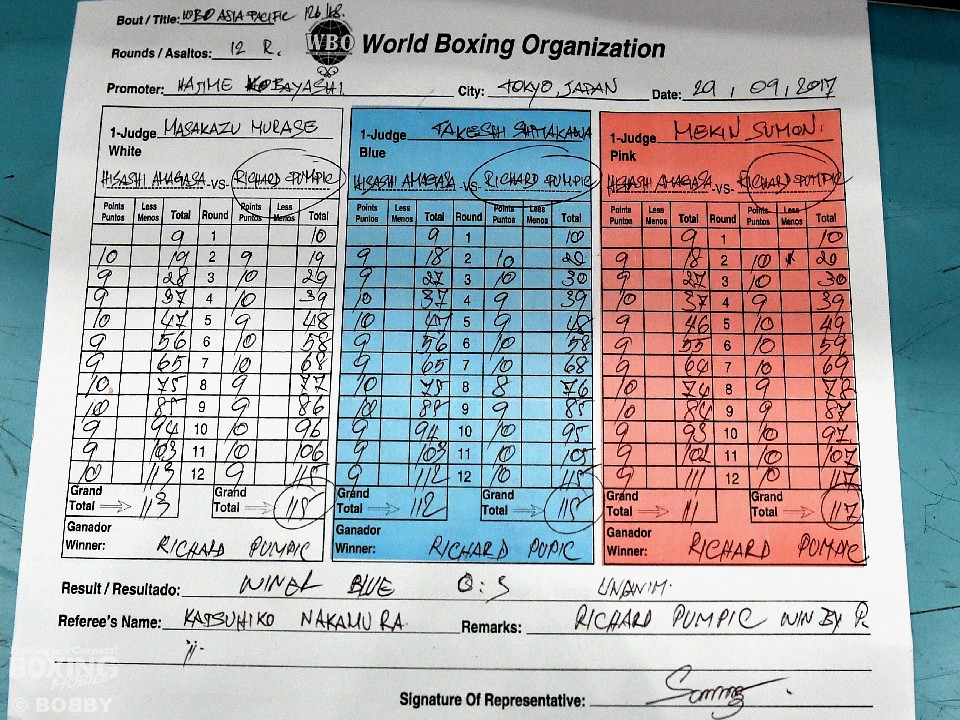 Bout / Title: WBO ASIA PACIFIC 126 lbs.
WBO World Boxing Organization
Rounds / Asaltos: 12 R.
Promoter: HAJIME KOBAYASHI City: TOKYO, JAPAN Date: 29, 09, 2017
1-Judge MASAKAZU MURASE
White
HISASHI AMAGASA -VS- RICHARD PUMPIC
Points Less Total Round Points Less Total
Puntos Menos Puntos Menos
9 1 10
10 19 2 9 19
9 28 3 10 29
9 37 4 10 39
10 47 5 9 48
9 56 6 10 58
9 65 7 10 68
10 75 8 9 77
10 85 9 9 86
9 94 10 10 96
9 103 11 10 106
10 113 12 9 115
Grand Total 113 Grand Total 115
Ganador
Winner: RICHARD PUMPIC
1-Judge TAKESHI SHIMAKAWA
Blue
HISASHI AMAGASA -VS- RICHARD PUMPIC
Points Less Total Round Points Less Total
Puntos Menos Puntos Menos
9 1 10
9 18 2 10 20
9 27 3 10 30
10 37 4 9 39
10 47 5 9 48
9 56 6 10 58
9 65 7 10 68
10 75 8 8 76
10 85 9 9 85
9 94 10 10 95
9 103 11 10 105
9 112 12 10 115
Grand Total 112 Grand Total 115
Ganador
Winner: RICHARD PUPIC
1-Judge MEKIN SUMON.
Pink
HISASHI AMAGASA -VS- RICHARD PUMPIC
Points Less Total Round Points Less Total
Puntos Menos Puntos Menos
9 1 10
9 18 2 10 20
9 27 3 10 30
10 37 4 9 39
9 46 5 10 49
9 55 6 10 59
9 64 7 10 69
10 74 8 9 78
10 84 9 9 87
9 93 10 10 97
9 102 11 10 107
9 111 12 10 117
Grand Total 111 Grand Total 117
Ganador
Winner: RICHARD PUMPIC
Result / Resultado: WINER BLUE 0:3 UNANIM.
Referee's Name: KATSUHIKO NAKAMURA Remarks: RICHARD PUMPIC WIN BY P.
Signature Of Representative:
BOXING
© BOBBY